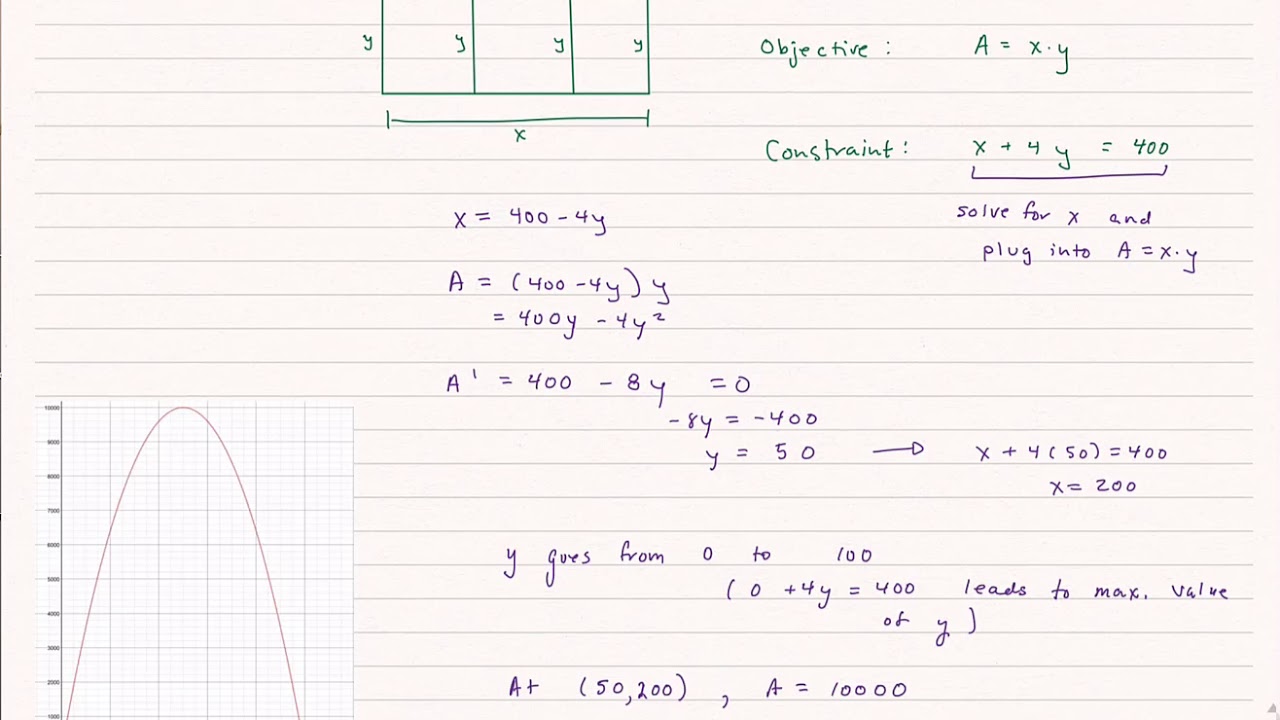 y y y y
Objective : A = x·y
x
Constraint : x + 4y = 400
x = 400 - 4y
solve for x and
plug into A = x·y
A = (400 - 4y) y
= 400y - 4y²
A' = 400 - 8y = 0
-8y = -400
y = 50 → x + 4(50) = 400
x = 200
10000
9000
8000
7000
6000
5000
4000
3000
2000
1000
y goes from 0 to 100
(0 + 4y = 400 leads to max. value
of y)
At (50,200), A = 10000